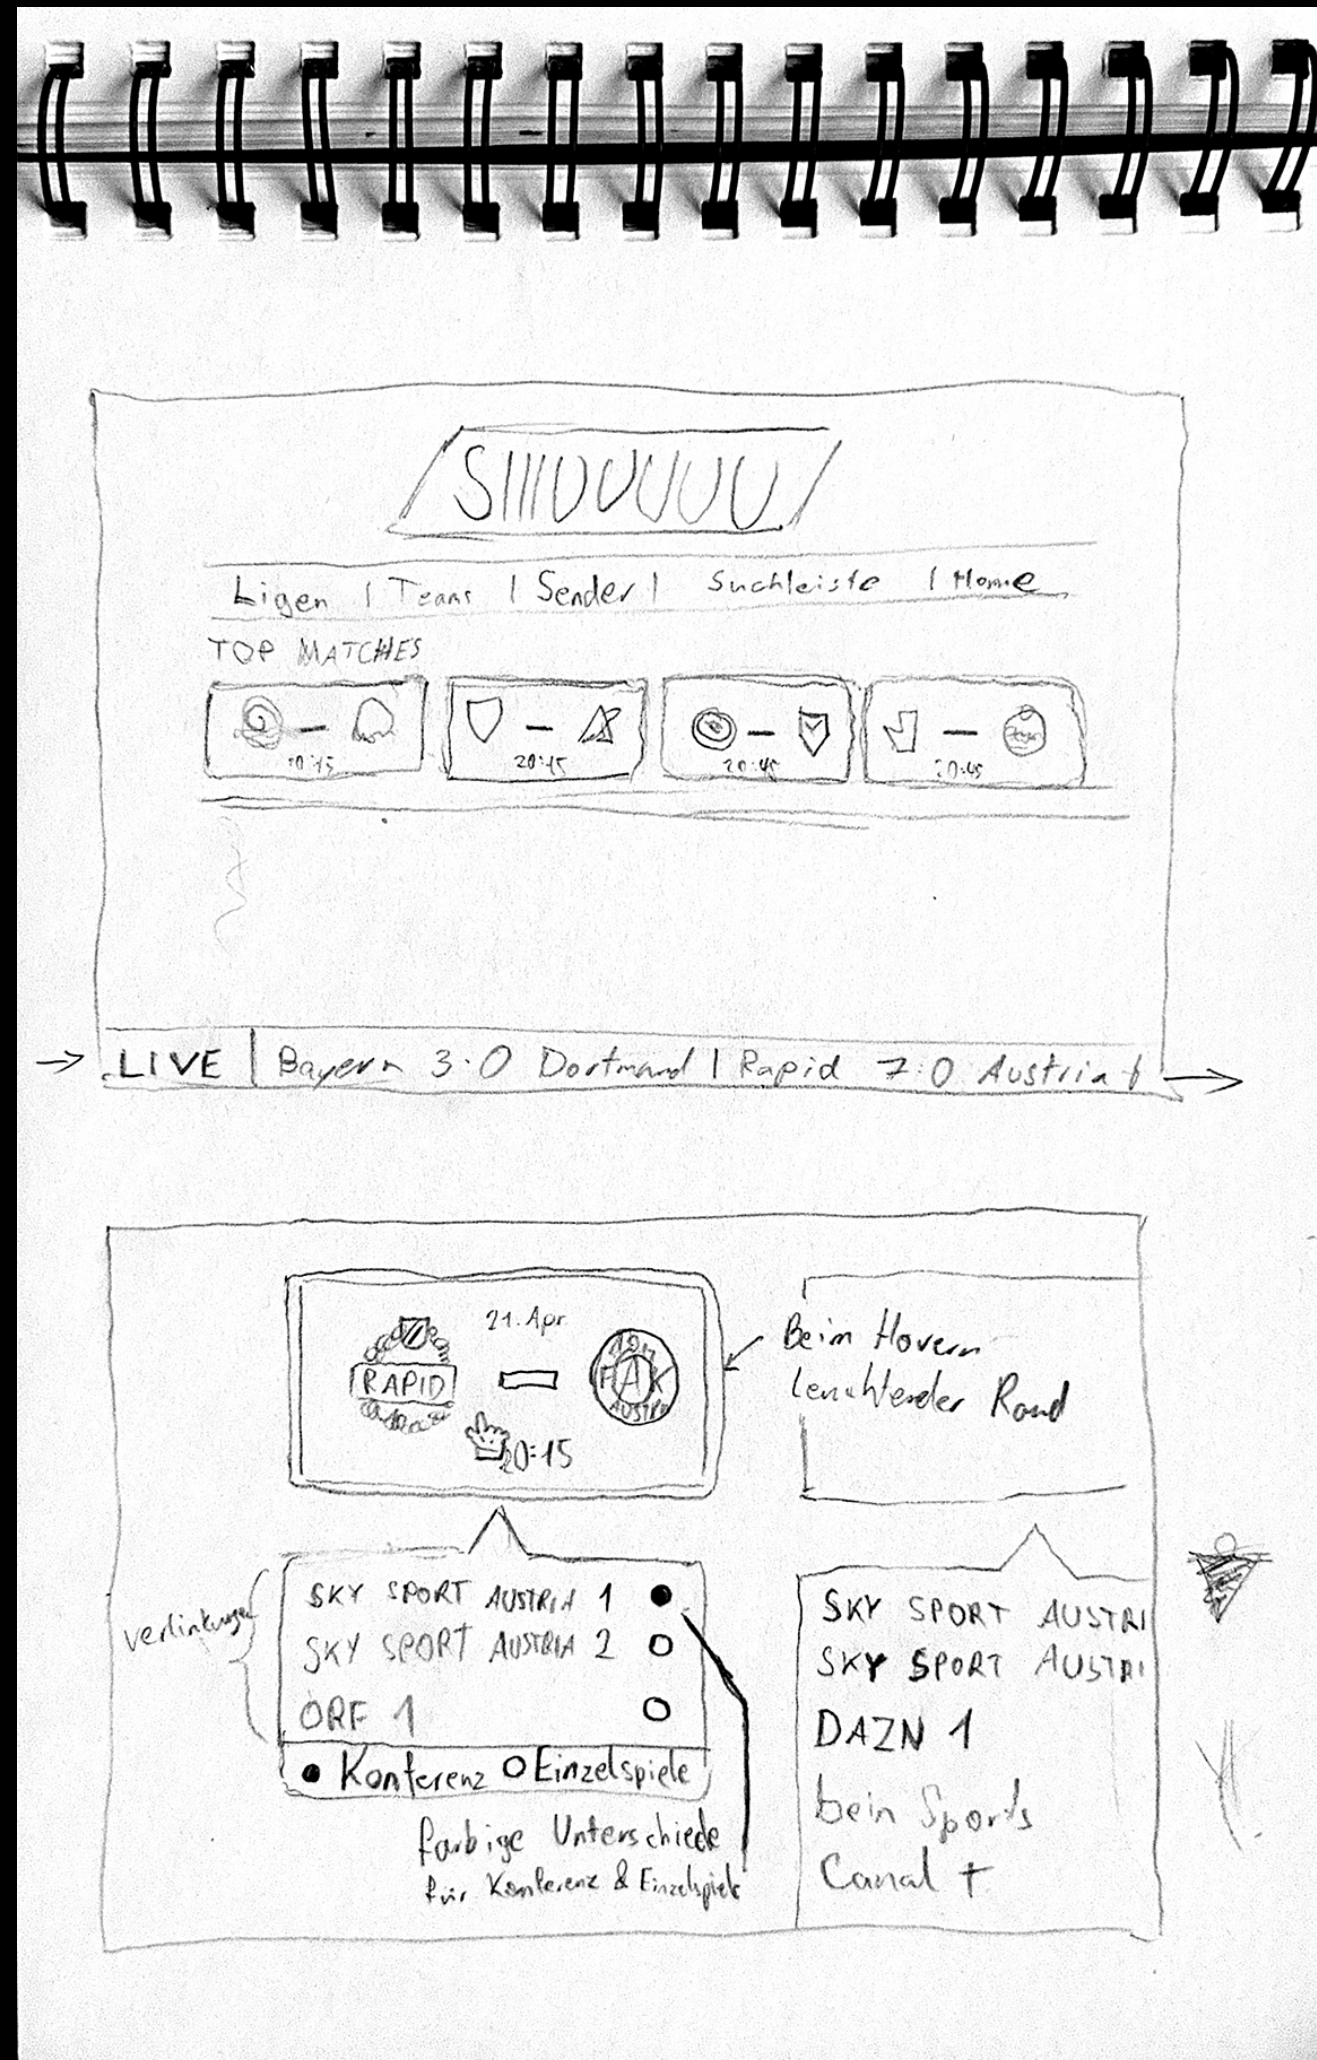 SIIIUUUUU
Ligen | Teams | Sender | Suchleiste | Home
TOP MATCHES
20:45 20:45 20:45 20:45
LIVE | Bayern 3:0 Dortmund | Rapid 7:0 Austria
21. Apr.
RAPID
FAK
AUSTRIA
20:15
Beim Hovern
leuchtender Rand
Verlinkungen
SKY SPORT AUSTRIA 1
SKY SPORT AUSTRIA 2
ORF 1
Konferenz Einzelspiele
farbige Unterschiede
für Konferenz & Einzelspiele
SKY SPORT AUSTRI
SKY SPORT AUSTRI
DAZN 1
bein Sports
Canal +